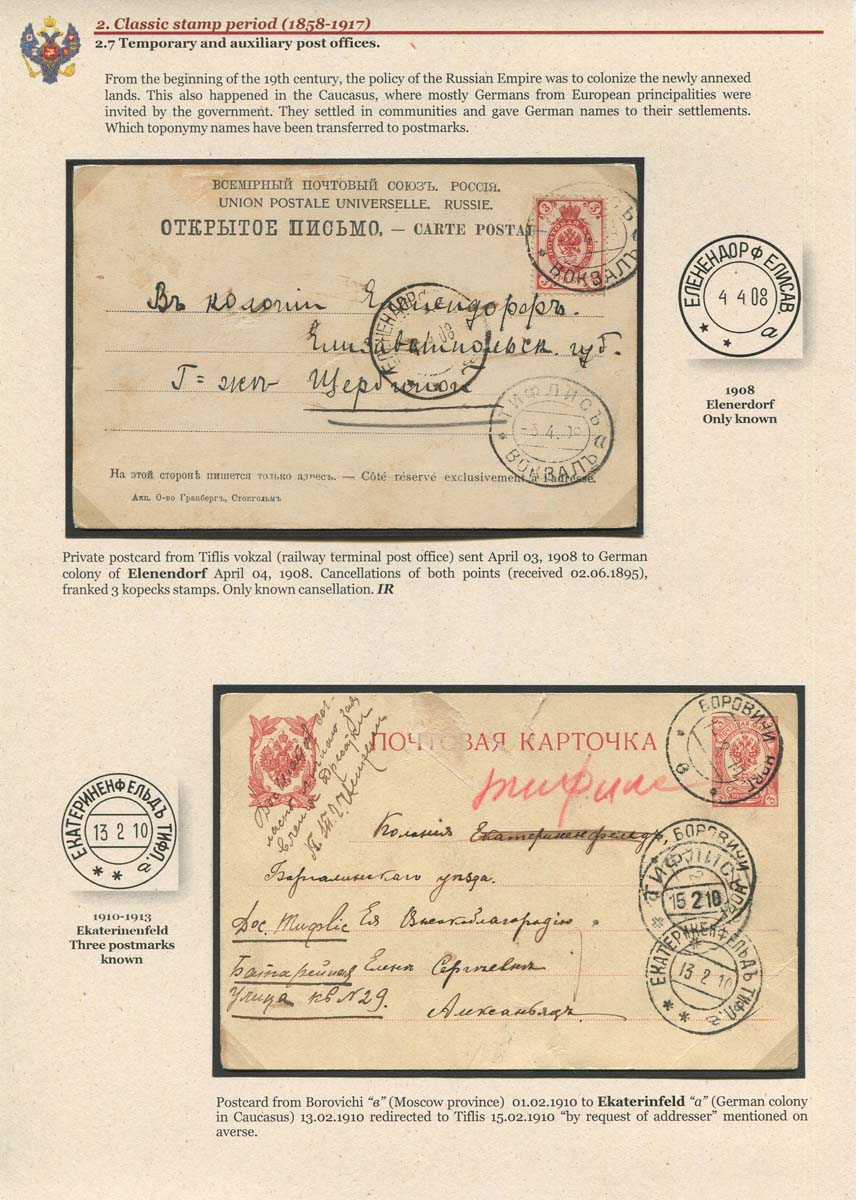 2. Classic stamp period (1858-1917)
2.7 Temporary and auxiliary post offices.
From the beginning of the 19th century, the policy of the Russian Empire was to colonize the newly annexed
lands. This also happened in the Caucasus, where mostly Germans from European principalities were
invited by the government. They settled in communities and gave German names to their settlements.
Which toponymy names have been transferred to postmarks.
ВСЕМІРНЫЙ ПОЧТОВЫЙ СОЮЗЪ. РОССІЯ.
UNION POSTALE UNIVERSELLE. RUSSIE.
ОТКРЫТОЕ ПИСЬМО, — CARTE POSTAL
ВОКЗАЛЪ
Въ колоніи Еленендорфъ.
Елизаветпольск. губ.
Г=жѣ Щербиной
ЕЛЕНЕНДОР
08
ТИФЛИСЪ
-3.4.08
а
ВОКЗАЛЪ
На этой сторонѣ пишется только адресъ. — Côté réservé exclusivement à l'adresse.
Акц. О-во Гранбергъ, Стокгольмъ.
ЕЛЕНЕНДОРФ ЕЛИСАВ.
4 4 08
а
1908
Elenerdorf
Only known
Private postcard from Tiflis vokzal (railway terminal post office) sent April 03, 1908 to German
colony of Elenendorf April 04, 1908. Cancellations of both points (received 02.06.1895),
franked 3 kopecks stamps. Only known cansellation. IR
ПОЧТОВАЯ КАРТОЧКА
БОРОВИЧИ НОВГ.
в
Тифлис
Колонія Екатериненфельдъ,
Борчалинскаго уѣзда.
Дос. Тифлис Ея Высокоблагородію
Батарейная Еленѣ Сергѣевнѣ
Улица кв N 29.
Александъ
БОРОВИЧИ
ТИФЛИСЪ
15 2 10
ЕКАТЕРИНЕНФЕЛЬДЪ ТИФЛ.
13 2 10
а
ЕКАТЕРИНЕНФЕЛЬДЪ ТИФЛ.
13 2 10
а
1910-1913
Ekaterinenfeld
Three postmarks
known
Postcard from Borovichi “в” (Moscow province) 01.02.1910 to Ekaterinfeld “а” (German colony
in Caucasus) 13.02.1910 redirected to Tiflis 15.02.1910 “by request of addresser” mentioned on
averse.